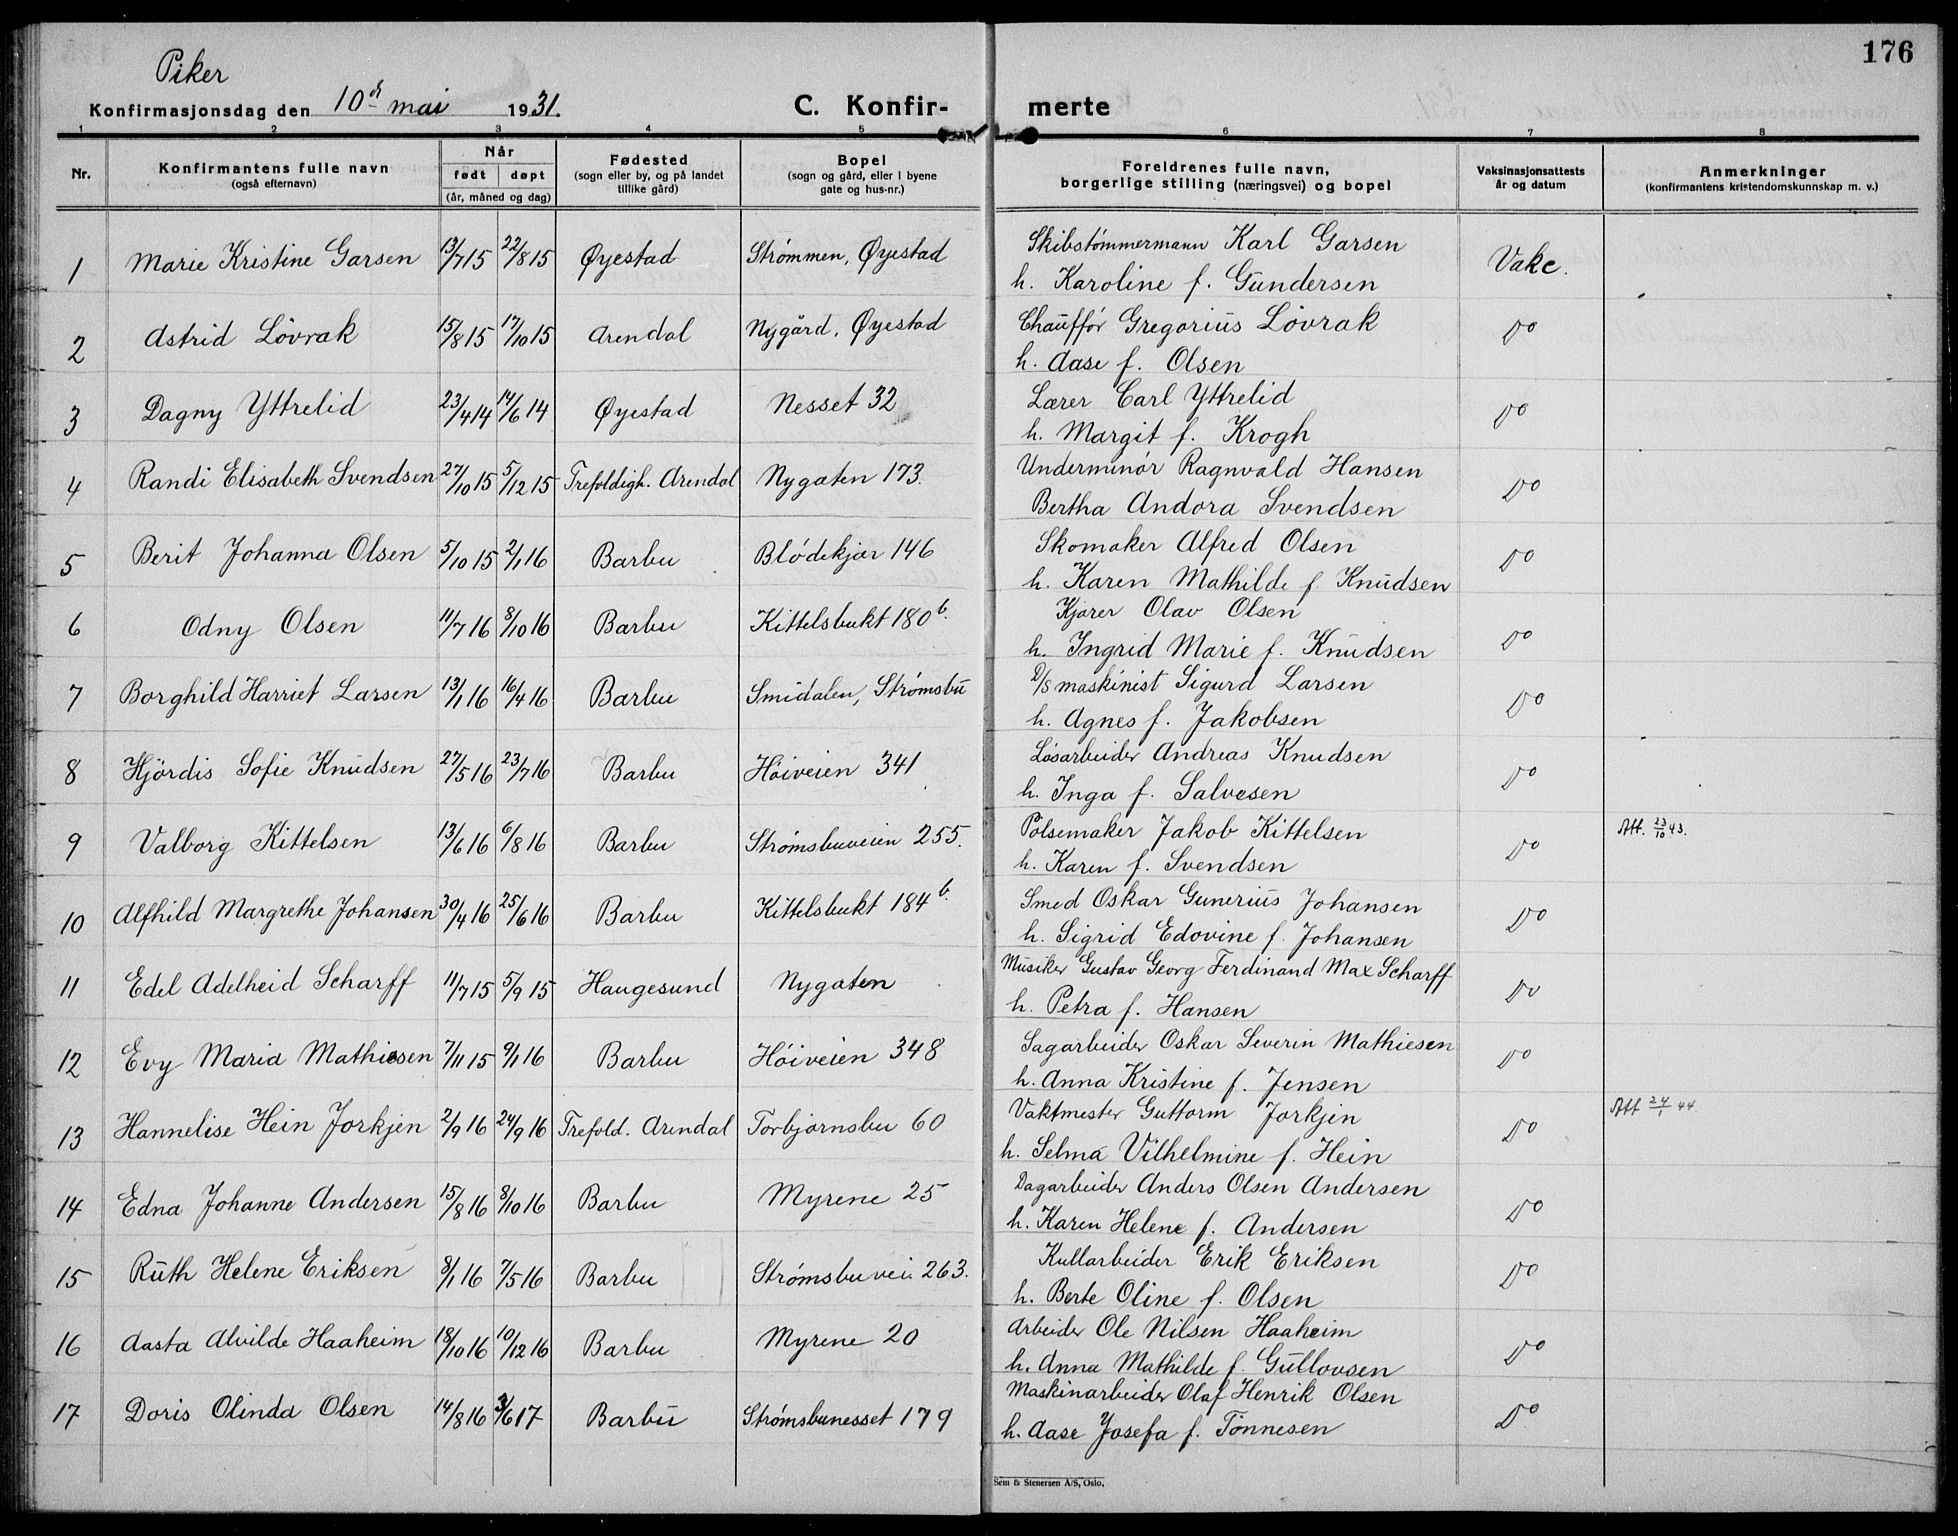 176
Piker
Konfirmasjonsdag den 10d mai 1931.
C. Konfir- merte
1 2 3 4 5 6 7 8
Nr.
Konfirmantens fulle navn
(også efternavn)
Når
født døpt
(år, måned og dag)
Fødested
(sogn eller by, og på landet
tillike gård)
Bopel
(sogn og gård, eller i byene
gate og hus-nr.)
Foreldrenes fulle navn,
borgerlige stilling (næringsvei) og bopel
Vaksinasjonsattests
år og datum
Anmerkninger
(konfirmantens kristendomskunnskap m. v.)
1 Marie Kristine Garsen 13/7 15 22/8 15 Øyestad Strømmen, Øyestad Skibstømmermann Karl Garsen Vakc.
h. Karoline f. Gundersen
2 Astrid Lövrak 15/8 15 17/10 15 Arendal Nygård, Øyestad Chauffór Gregorius Lövrak Do
h. Aase f. Olsen
3 Dagny Yttrelid 23/4 14 14/6 14 Øyestad Nesset 32 Lærer Carl Yttrelid Do
h. Margit f. Krogh
4 Randi Elisabeth Svendsen 27/10 15 5/12 15 Trefoldigh. Arendal Nygaten 173. Underminór Ragnvald Hansen Do
Bertha Andora Svendsen
5 Berit Johanna Olsen 5/10 15 2/1 16 Barbu Blódekjær 146 Skomaker Alfred Olsen Do
h. Karen Mathilde f. Knudsen
6 Odny Olsen 11/7 16 8/10 16 Barbu Kittelsbukt 180 b. Kjører Olav Olsen Do
h. Ingrid Marie f. Knudsen
7 Borghild Harriet Larsen 13/1 16 16/4 16 Barbu Smidalen, Strømsbu D/S maskinist Sigurd Larsen Do
h. Agnes f. Jakobsen
8 Hjördis Sofie Knudsen 27/5 16 23/7 16 Barbu Hóiveien 341 Løsarbeider Andreas Knudsen Do
h. Inga f. Salvesen
9 Valborg Kittelsen 13/6 16 6/8 16 Barbu Strømsbuveien 255. Pólsemaker Jakob Kittelsen Do Att. 23/10 43.
h. Karen f. Svendsen
10 Alfhild Margrethe Johansen 30/4 16 25/6 16 Barbu Kittelsbukt 184 b. Smed Oskar Gunerius Johansen Do
h. Sigrid Edovine f. Johansen
11 Edel Adelheid Scharff 11/7 15 5/9 15 Haugesund Nygaten Musiker Gustav Georg Ferdinand Max Scharff Do
h. Petra f. Hansen
12 Evy Maria Mathiesen 7/11 15 9/1 16 Barbu Hóiveien 348 Sagarbeider Oskar Severin Mathiesen Do
h. Anna Kristine f. Jensen
13 Hannelise Hein Jorkjen 2/9 16 24/9 16 Trefold. Arendal Torbjørnsbu 60 Vaktmester Guttorm Jorkjen Do Att 24/1 44.
h. Selma Vilhelmine f. Hein
14 Edna Johanne Andersen 15/8 16 8/10 16 Barbu Myrene 25 Dagarbeider Anders Olsen Andersen Do
h. Karen Helene f. Andersen
15 Ruth Helene Eriksen 8/1 16 7/5 16 Barbu Strømsbuvei 263. Kullarbeider Erik Eriksen Do
h. Berte Oline f. Olsen
16 Aasta Alvilde Haaheim 18/10 16 10/12 16 Barbu Myrene 20 Arbeider Ole Nilsen Haaheim Do
h. Anna Mathilde f. Gullovsen
17 Doris Olinda Olsen 14/8 16 3/6 17 Barbu Strømsbunesset 179 Maskinarbeider Olaf Henrik Olsen Do
h. Aase Josefa f. Tönnesen
Sem & Stenersen A/S, Oslo.